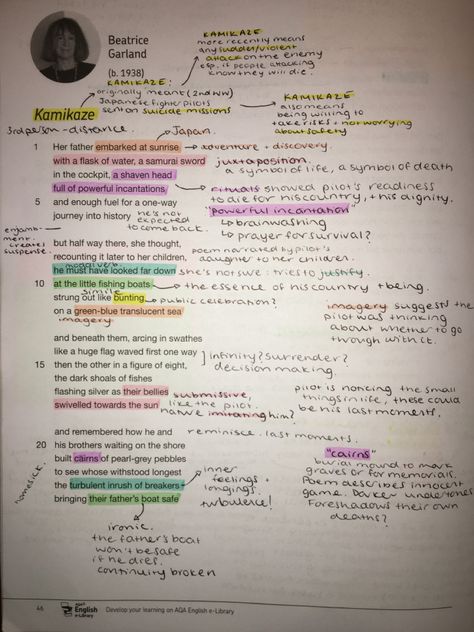 Beatrice
Garland
(b. 1938)
KAMIKAZE
more recently means
any sudden/violent
attack on the enemy
esp. if people attacking
know they will die.
KAMIKAZE:
originally meant (2nd WW)
Japanese fighter pilots
sent on suicide missions
KAMIKAZE
also means
being willing to
take risks + not worrying
about safety
Kamikaze
3rd person - distance.
Japan.
1 Her father embarked at sunrise
adventure + discovery.
with a flask of water, a samurai sword
juxtaposition
a symbol of life, a symbol of death
in the cockpit, a shaven head
full of powerful incantations
rituals showed pilot's readiness
to die for his country, + his dignity.
5 and enough fuel for a one-way
journey into history
he's not
expected
to come back.
"powerful incantation"
brainwashing
prayer for survival?
enjamb-
ment:
creates
suspense.
but half way there, she thought,
recounting it later to her children,
poem narrated by pilot's
daughter to her children.
he must have looked far down
she's not sure: tries to justify.
10 at the little fishing boats
the essence of his country + being.
simile
strung out like bunting
public celebration?
on a green-blue translucent sea
imagery
imagery suggests the
pilot was thinking
about whether to go
through with it.
and beneath them, arcing in swathes
like a huge flag waved first one way
15 then the other in a figure of eight,
infinity? surrender?
decision making.
the dark shoals of fishes
flashing silver as their bellies
swivelled towards the sun
submissive,
like the pilot.
nature imitating him?
pilot is noticing the small
things in life, these could
be his last moments.
and remembered how he and
reminisce. last moments.
20 his brothers waiting on the shore
built cairns of pearl-grey pebbles
to see whose withstood longest
the turbulent inrush of breakers
bringing their father's boat safe
homesick.
inner
feelings +
longings.
turbulence!
"cairns"
burial mound to mark
graves or for memorials.
Poem describes innocent
game. Darker undertones
Foreshadows their own
deaths?
ironic.
the father's boat
won't be safe
if he dies.
continuity broken
46
AQA
English
e-Library
Develop your learning on AQA English e-Library